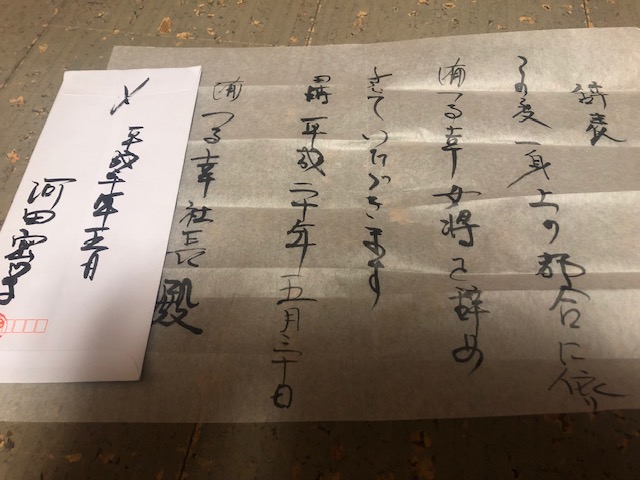 辞表
この度一身上の都合に依り
㈲つる幸女将を辞め
させていただきます
平成二十年五月三十日
㈲つる幸 社長殿
〆
平成二十年五月
河田